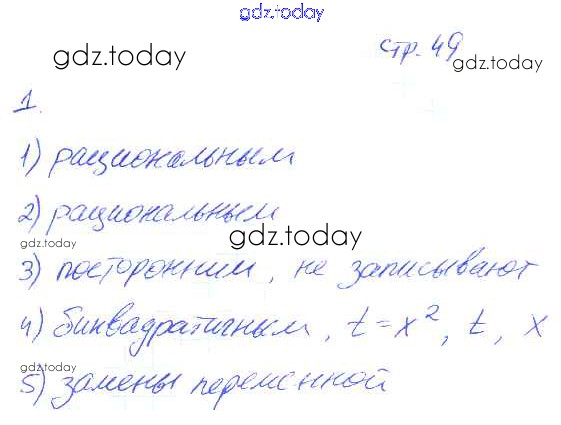 gdz.today
gdz.today стр. 49
gdz.today
1.
1) рациональным
2) рациональным
gdz.today gdz.today
3) посторонним, не записывают
4) биквадратичным, t = x², t, x
gdz.today
5) замены переменной